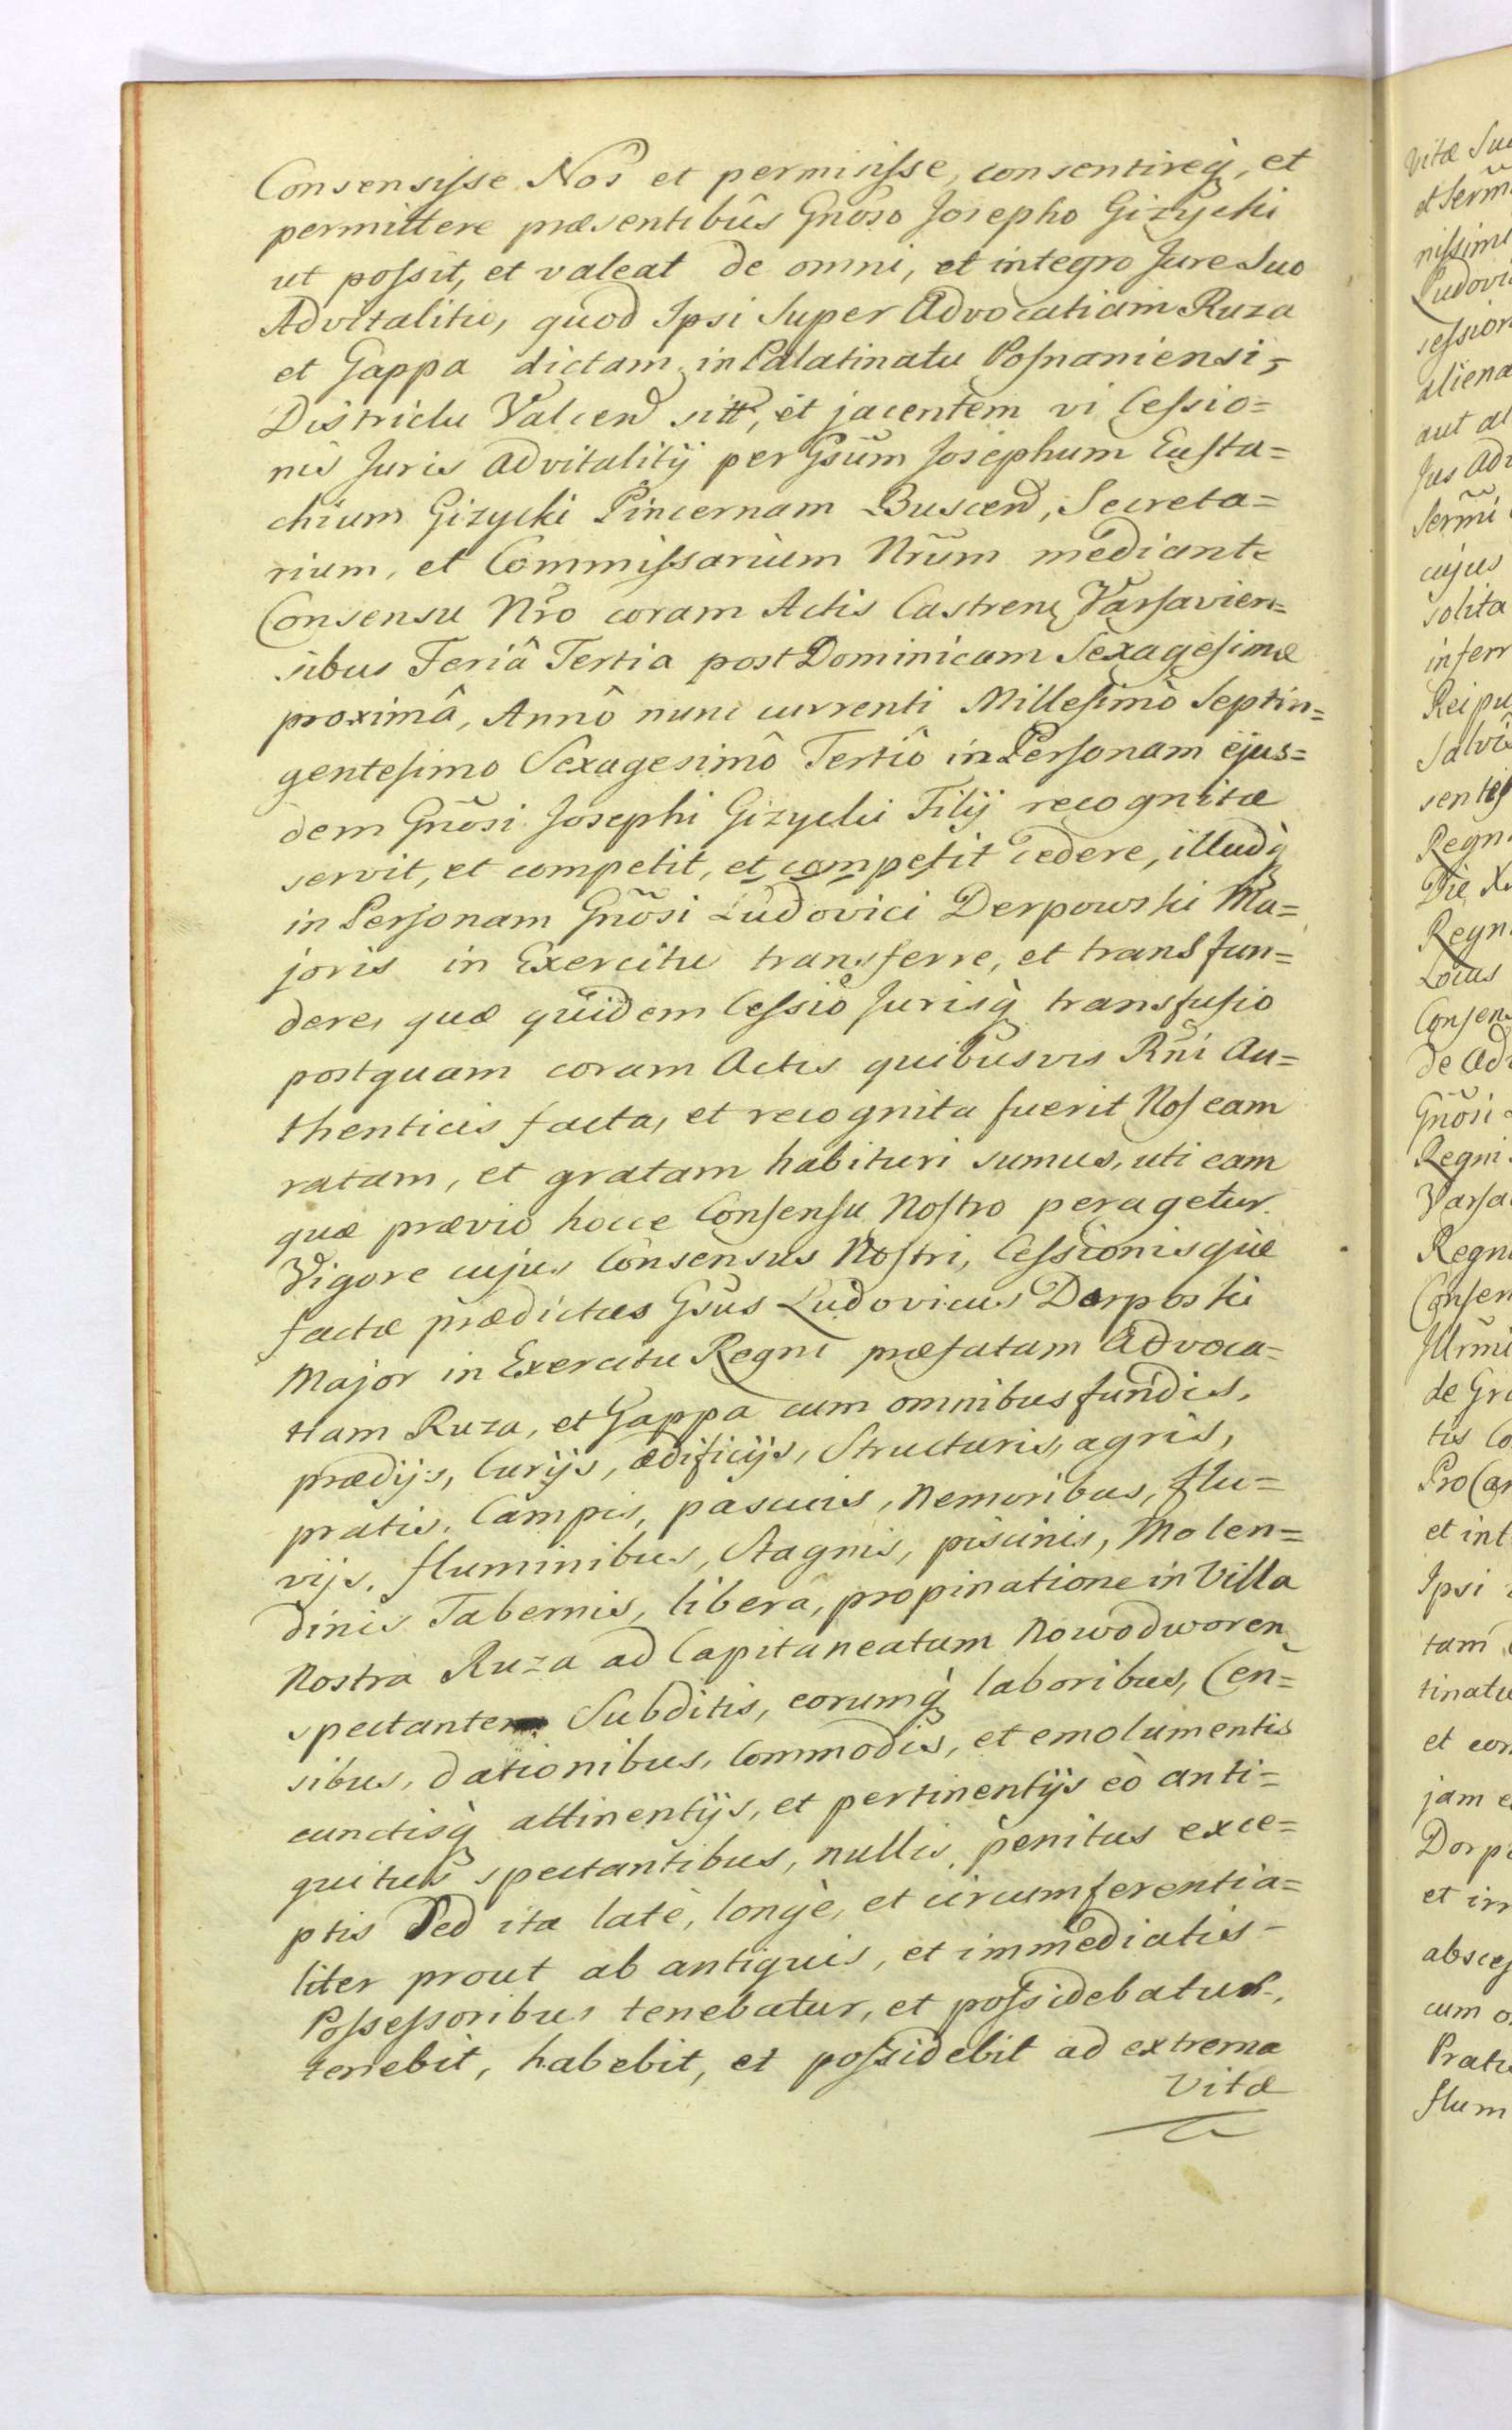 Consensisse Nos et permisisse, consentireq̀, et
permittere præsentibûs Gnõso Josepho Gizycki
ut possit, et valeat de omni, et integro Jure Suo
Advitalitio, quod Ipsi super Advocatiam Ruza
et Gappa dictam in Palatinatu Posnaniensi,
Districtu Valcen sitt, et jacentem vi Cessio=
nis Juris advitalitij per Gsũm Josephum Eusta=
chium Gizycki Pincernam Buscen, Secreta=
rium, et Commissarium Nrũm mediante
Consensu Nrõ coram Actis Castren Varsavien=
sibus Feriâ Tertia post Dominicam Sexagesimæ
proximâ, Annô nunc currenti Millesimô Septin=
gentesimo Sexagesimô Tertiô in Personam ejus=
dem Gnõsi Josephi Gizycki Filij recognitæ
servit, et competit, et competit cedere, illudq̀
in Personam Gnõsi Ludovici Derpowski Ma=
joris in Exercitu transferre, et transfun=
dere, quæ quidem Cessio Jurisq̀ transfusio
postquam coram Actis quibusvis Rñi Au=
thenticis facta, et recognita fuerit Nos eam
ratam, et gratam habituri sumus, uti eam
quæ prævio hocce Consensu Nostro peragetur.
Vigore cujus Consensus Nostri, Cessionisque
factæ prædictus Gsũs Ludovicus Dorposki
Major in Exercitu Regni præfatam Advoca=
tiam Ruza, et Gappa cum omnibus fundis,
prædijs, Curijs, ædificijs, Structuris, agris,
pratis, Campis, pascuis, Nemoribus, flu=
vijs, fluminibus, Stagnis, piscinis, Molen=
dinis Tabernis, liberâ, propinatione in Villa
Nostra Ruza ad Capitaneatum Nowodworen
spectante Subditis, eorumq̀ laboribus, Cen=
sibus, dationibus, Commodis, et emolumentis
cunctisq̀ attinentijs, et pertinentijs eò anti=
quitus spectantibus, nullis penitus exce=
ptis Sed ita latè, longè, et circumferentia=
liter prout ab antiquis, et immediatis
Possessoribus tenebatur, et possidebatur,
tenebit, habebit, et possidebit ad extrema
Vitæ